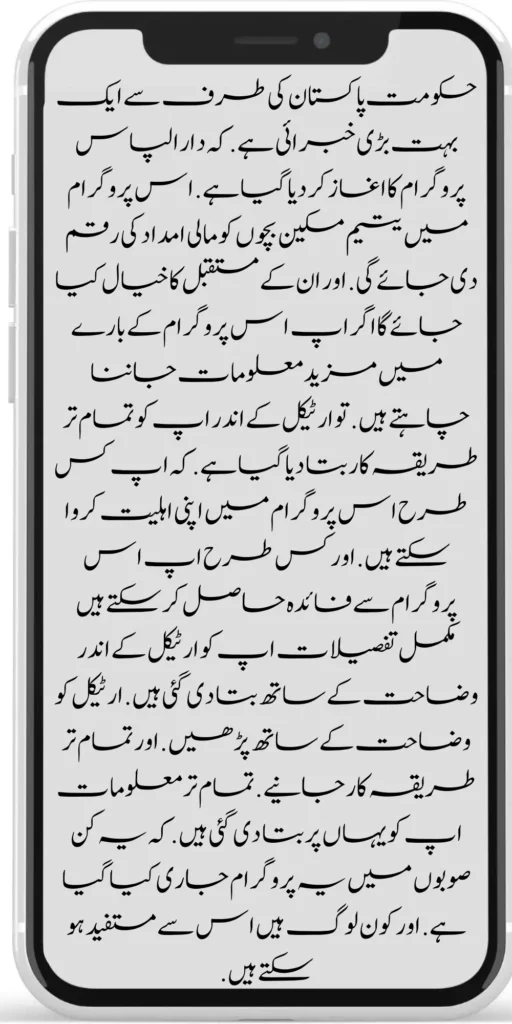 حکومت پاکستان کی طرف سے ایک
بہت بڑی خبر ائی ہے. کہ دار الپاس
پروگرام کا اغاز کر دیا گیا ہے. اس پروگرام
میں یتیم مسکین بچوں کو مالی امداد کی رقم
دی جائے گی. اور ان کے مستقبل کا خیال کیا
جائے گا اگر اپ اس پروگرام کے بارے
میں مزید معلومات جاننا
چاہتے ہیں. تو ارٹیکل کے اندر اپ کو تمام تر
طریقہ کار بتا دیا گیا ہے. کہ اپ کس
طرح اس پروگرام میں اپنی اہلیت کروا
سکتے ہیں. اور کس طرح اپ اس
پروگرام سے فائدہ حاصل کر سکتے ہیں
مکمل تفصیلات اپ کو ارٹیکل کے اندر
وضاحت کے ساتھ بتا دی گئی ہیں. ارٹیکل کو
وضاحت کے ساتھ پڑھیں. اور تمام تر
طریقہ کار جانیے. تمام تر معلومات
اپ کو یہاں پر بتا دی گئی ہیں. کہ یہ کن
صوبوں میں یہ پروگرام جاری کیا گیا
ہے. اور کون لوگ ہیں اس سے مستفید ہو
سکتے ہیں.